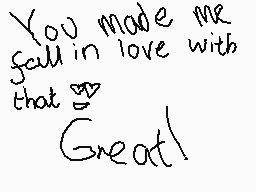 You made me
fall in love with
that
Great!